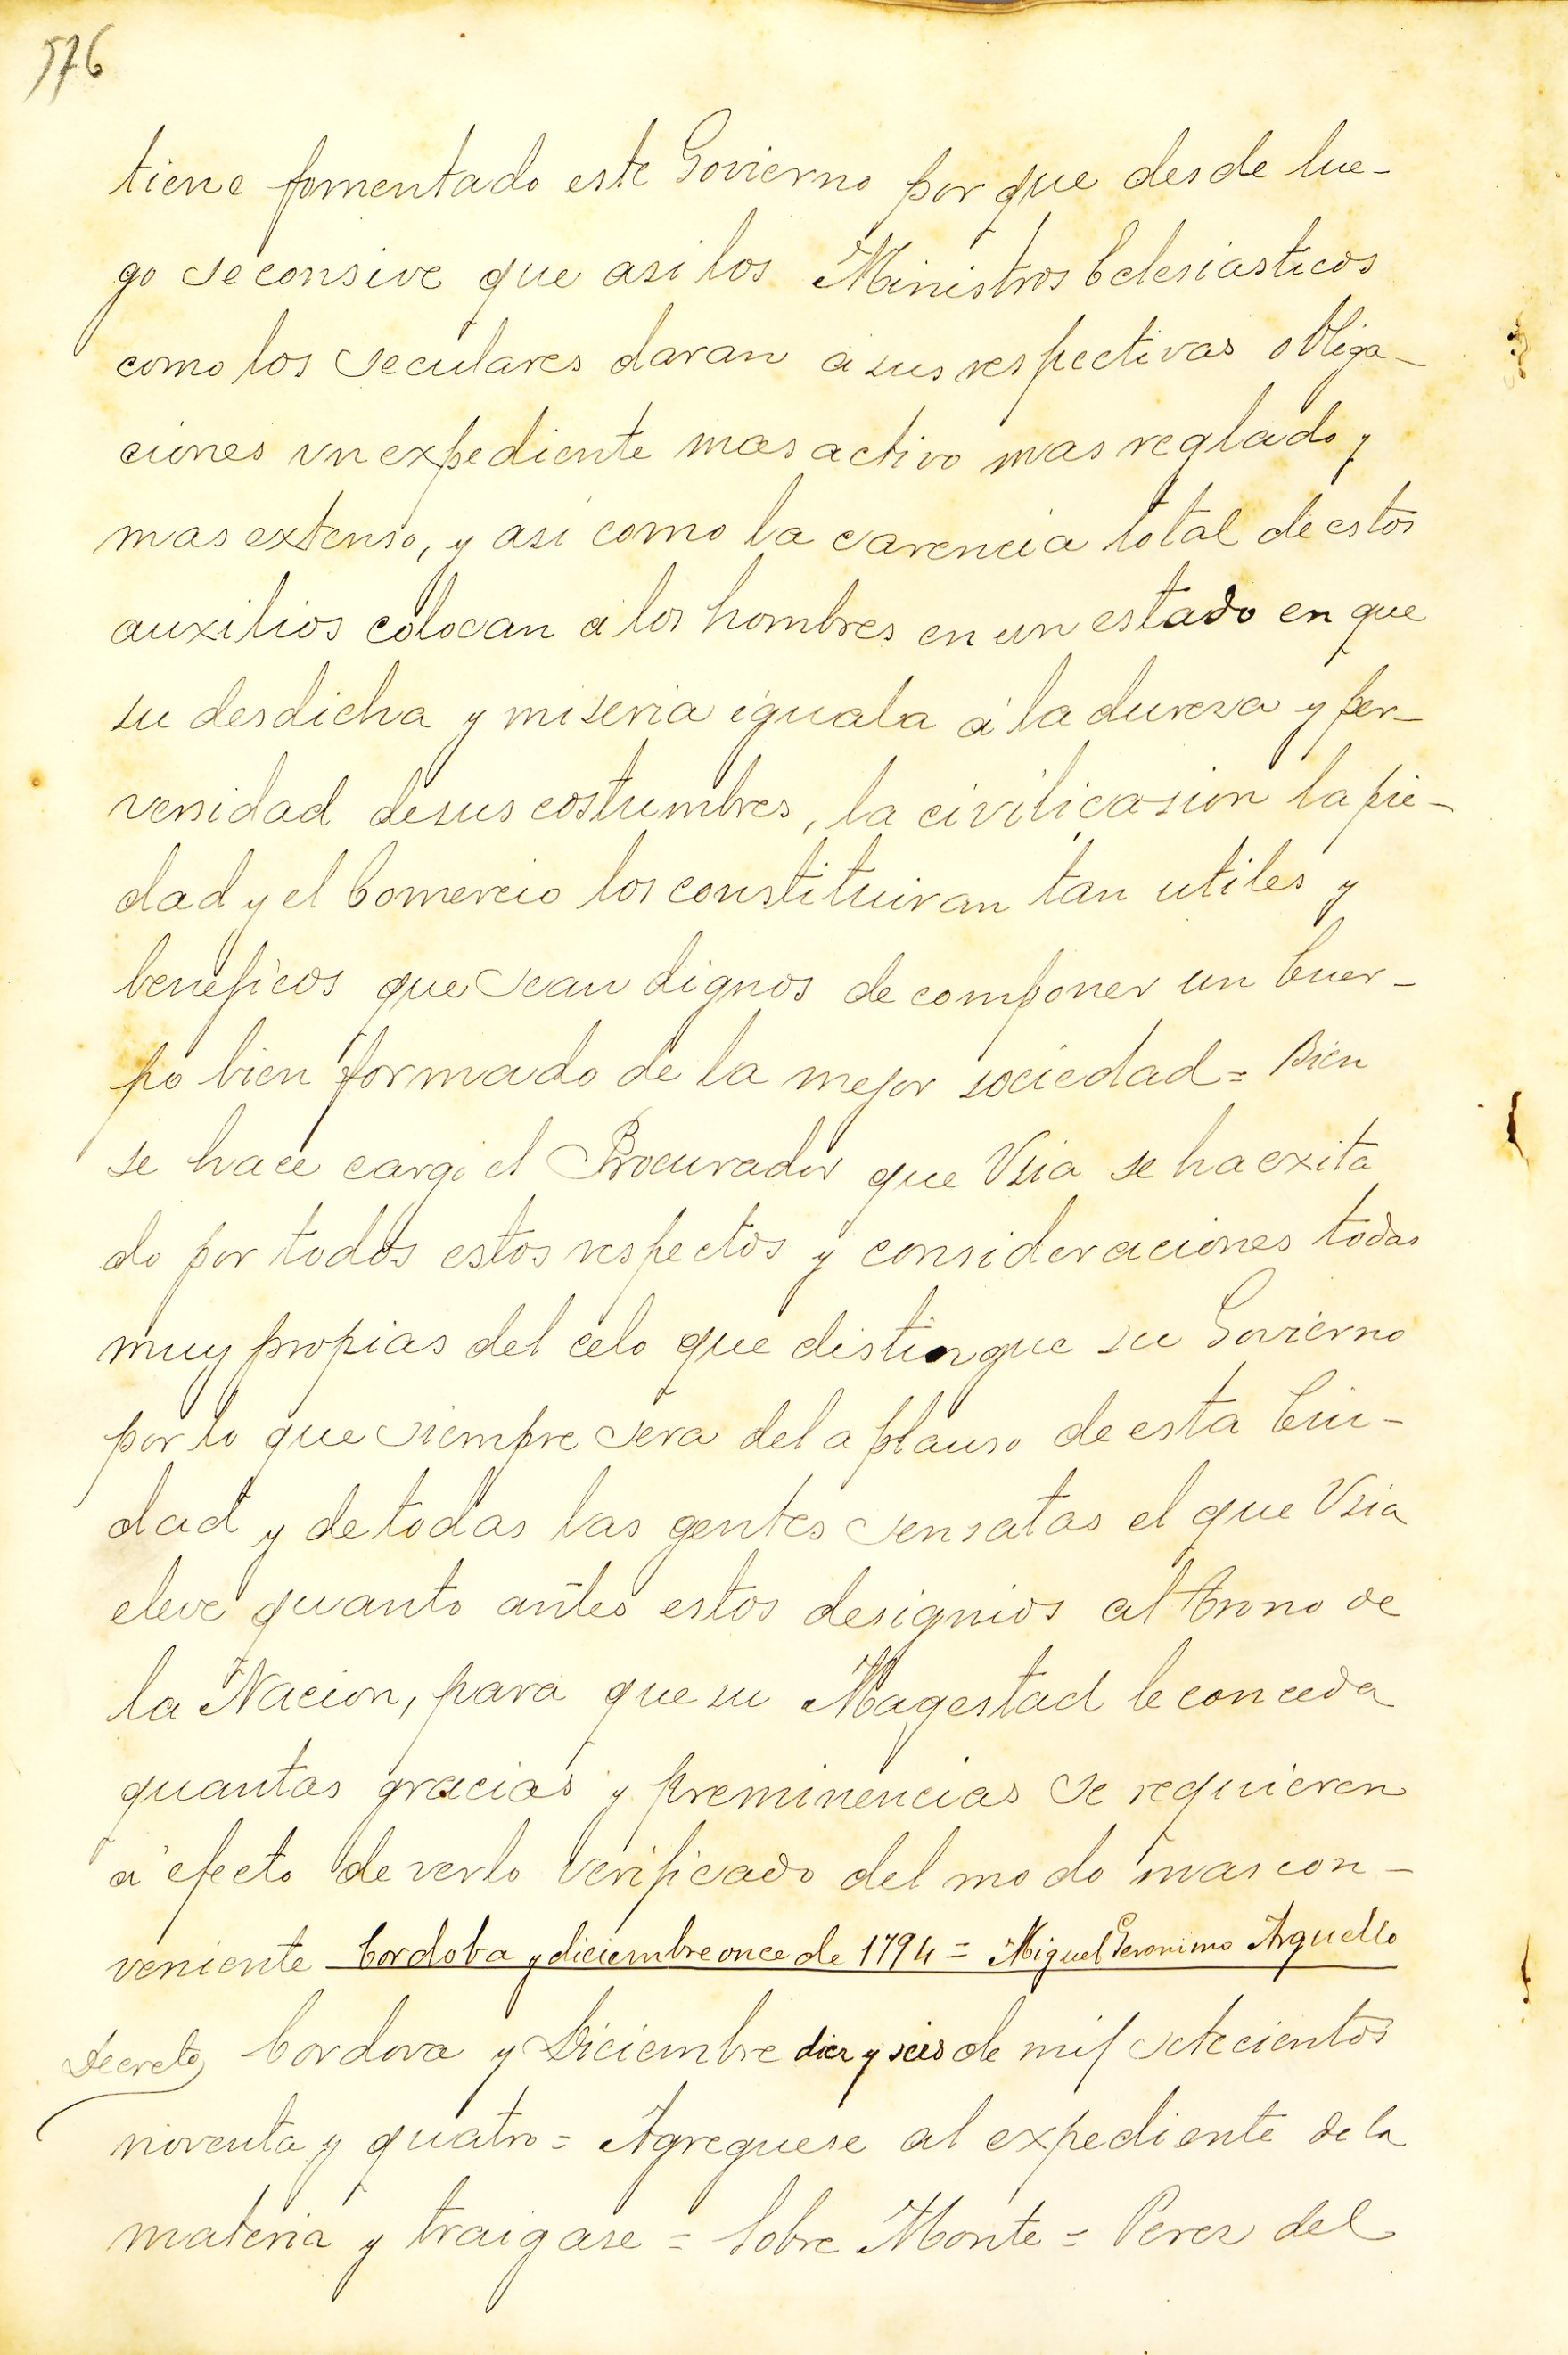 576
tiene fomentado este Govierno por que desde lue-
go se consive que asi los Ministros Eclesiasticos
como los seculares daran a sus respectivas obliga-
ciones un expediente mas activo mas reglado y
mas extenso, y asi como la carencia total de estos
auxilios colocan a los hombres en un estado en que
su desdicha y miseria iguala á la duresa y per-
versidad de sus costumbres, la civilicasion la pie-
dad y el Comercio los constituiran tan utiles y
beneficos que sean dignos de componer un Cuer-
po bien formado de la mejor sociedad = Bien
se hace cargo el Procurador que Vsia se ha exita
do por todos estos respectos y consideraciones todas
muy propias del celo que distingue su Govierno
por lo que siempre sera del aplauso de esta Ciu-
dad y de todas las gentes sensatas el que Vsia
eleve quanto antes estos designios al trono de
la Nacion, para que su Magestad le conceda
quantas gracias y preminencias se requieren
á efecto de verlo verificado del modo mas con-
veniente Cordoba y diciembre once de 1794 = Miguel Geronimo Arguello
Decreto Cordova y Diciembre diez y seis de mil setecientos
noventa y quatro = Agreguese al expediente de la
materia y traigase = Sobre Monte = Perez del